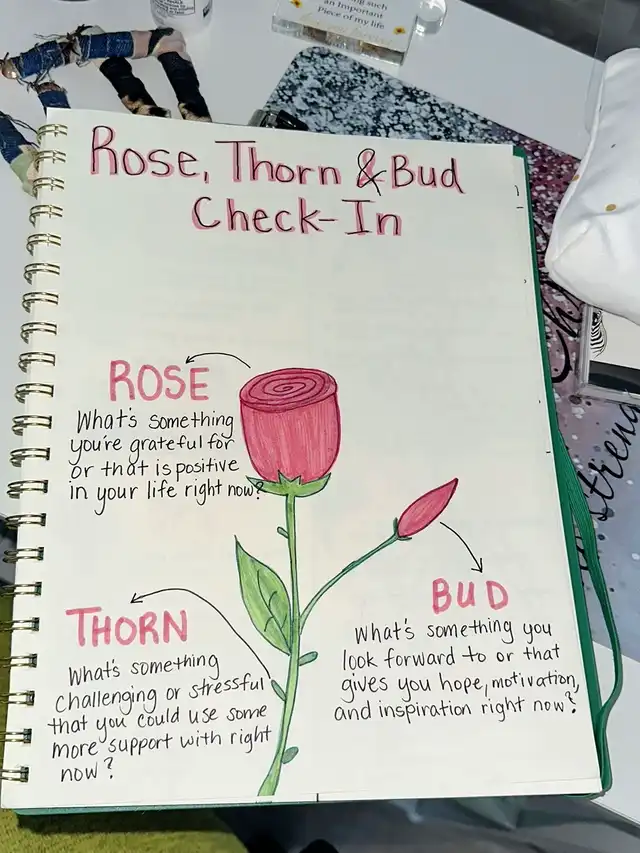 an Important
Piece of my life
Rose, Thorn & Bud
Check-In
ROSE
What's something
you're grateful for
or that is positive
in your life right now?
BUD
What's something you
look forward to or that
gives you hope, motivation,
and inspiration right now?
THORN
What's something
challenging or stressful
that you could use some
more support with right
now?